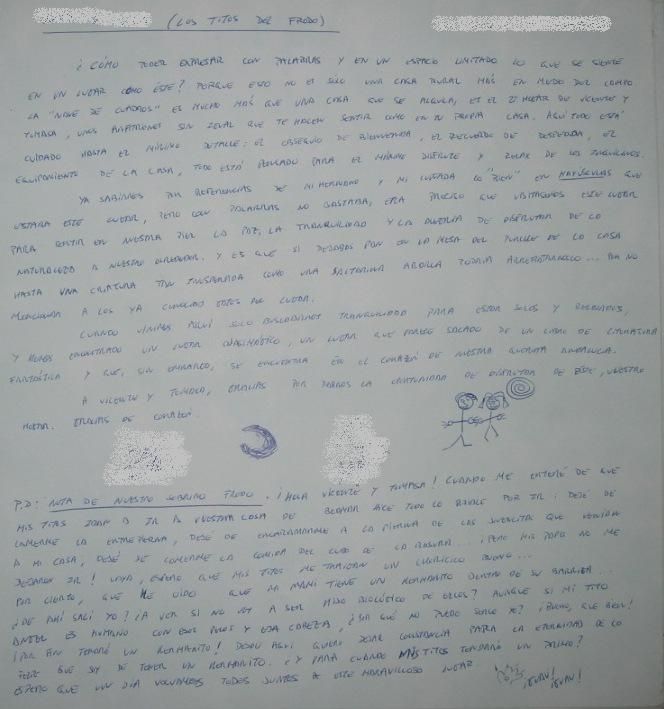 (LOS TITOS DEL FRODO)
¿CÓMO PODER EXPRESAR CON PALABRAS Y EN UN ESPACIO LIMITADO LO QUE SE SIENTE
EN UN LUGAR COMO ÉSTE? PORQUE ESTO NO ES SOLO UNA CASA RURAL MÁS EN MEDIO DEL CAMPO
LA "NAVE DE CUADROS" ES MUCHO MÁS QUE UNA CASA QUE SE ALQUILA, ES EL HOGAR DE VICENTE Y
TOMASA, UNOS ANFITRIONES SIN IGUAL QUE TE HACEN SENTIR COMO EN TU PROPIA CASA. AQUÍ TODO ESTÁ
CUIDADO HASTA EL MÍNIMO DETALLE: EL OBSEQUIO DE BIENVENIDA, EL RECUERDO DE DESPEDIDA, EL
EQUIPAMIENTO DE LA CASA, TODO ESTÁ PENSADO PARA EL MÁXIMO DISFRUTE Y RELAX DE LOS INQUILINOS.
YA SABÍAMOS POR REFERENCIAS DE MI HERMANO Y MI CUÑADA LO "BIEN" EN MAYÚSCULAS QUE
ESTABA ESTE LUGAR, PERO CON PALABRAS NO BASTABA, ERA PRECISO QUE VISITASEMOS ESTE LUGAR
PARA SENTIR EN NUESTRA PIEL LA PAZ, LA TRANQUILIDAD Y LA ALEGRÍA DE DISFRUTAR DE LO
NATURALEZA A NUESTRO ALREDEDOR. Y ES QUE SI DEJABAS PAN EN LA MESA DEL PORCHE DE LA CASA
HASTA UNA CRIATURA TAN INESPERADA COMO UNA SALTARINA ARDILLA PODRÍA ARREBATARCELO... POR NO
MENCIONAR A LOS YA CONOCIDO GATOS DEL LUGAR.
CUANDO VINIMOS AQUÍ SOLO BUSCÁBAMOS TRANQUILIDAD PARA ESTAR SOLOS Y RELAJADOS,
Y HEMOS ENCONTRADO UN LUGAR UN LUGAR QUE PARECE SACADO DE UN LIBRO DE LITERATURA
FANTÁSTICA Y QUE, SIN EMBARGO, SE ENCUENTRA EN EL CORAZÓN DE NUESTRA QUERIDA ANDALUCÍA.
A VICENTE Y TOMASA, GRACIAS POR DARNOS LA OPORTUNIDAD DE DISFRUTAR DE ÉSTE, VUESTRO
HOGAR. GRACIAS DE CORAZÓN.
P.D: NOTA DE NUESTRO SOBRINO FRODO. ¡HOLA VICENTE Y TOMASA! CUANDO ME ENTERÉ DE QUE
MIS TITAS IBAN A IR A VUESTRA CASA DE HICE TODO LO POSIBLE POR IR: DEJÉ DE
COMERME LA ENTREPIERNA, DEJÉ DE ENCARAMARME A LA PIERNA DE LAS QUE VENÍAN
A MI CASA, DEJÉ DE COMERME LA COMIDA DEL CUBO DE LA BASURA... ¡PERO MIS PAPIS NO ME
DEJARON IR! VAYA, ESPERO QUE MIS TITOS ME TRAIGAN UN CHORICICO BUENO...
POR CIERTO, QUE HE OÍDO QUE MI MAMI TIENE UN HERMANITO DENTRO DE SU BARRIGA...
¿DE AHÍ SALÍ YO? ¿A VER SI NO VOY A SER HIJO BIOLÓGICO DE ELLOS? AUNQUE SI MI TITO
ES HUMANO CON ESOS PELOS Y ESA CABEZA, ¿POR QUÉ NO PUEDO SERLO YO? ¡BUENO, QUE BIEN!
¡POR FIN TENDRÉ UN HERMANITO! DESDE AQUÍ QUIERO DEJAR CONSTANCIA PARA LA ETERNIDAD DE LO
FELIZ QUE SOY DE TENER UN HERMANITO. ¿Y PARA CUANDO MIS TITOS TENDRÁN UN PRIMO?
ESPERO QUE UN DÍA VOLVAMOS TODOS JUNTOS A ESTE MARAVILLOSO LUGAR.
¡GUAU!
¡GUAU!